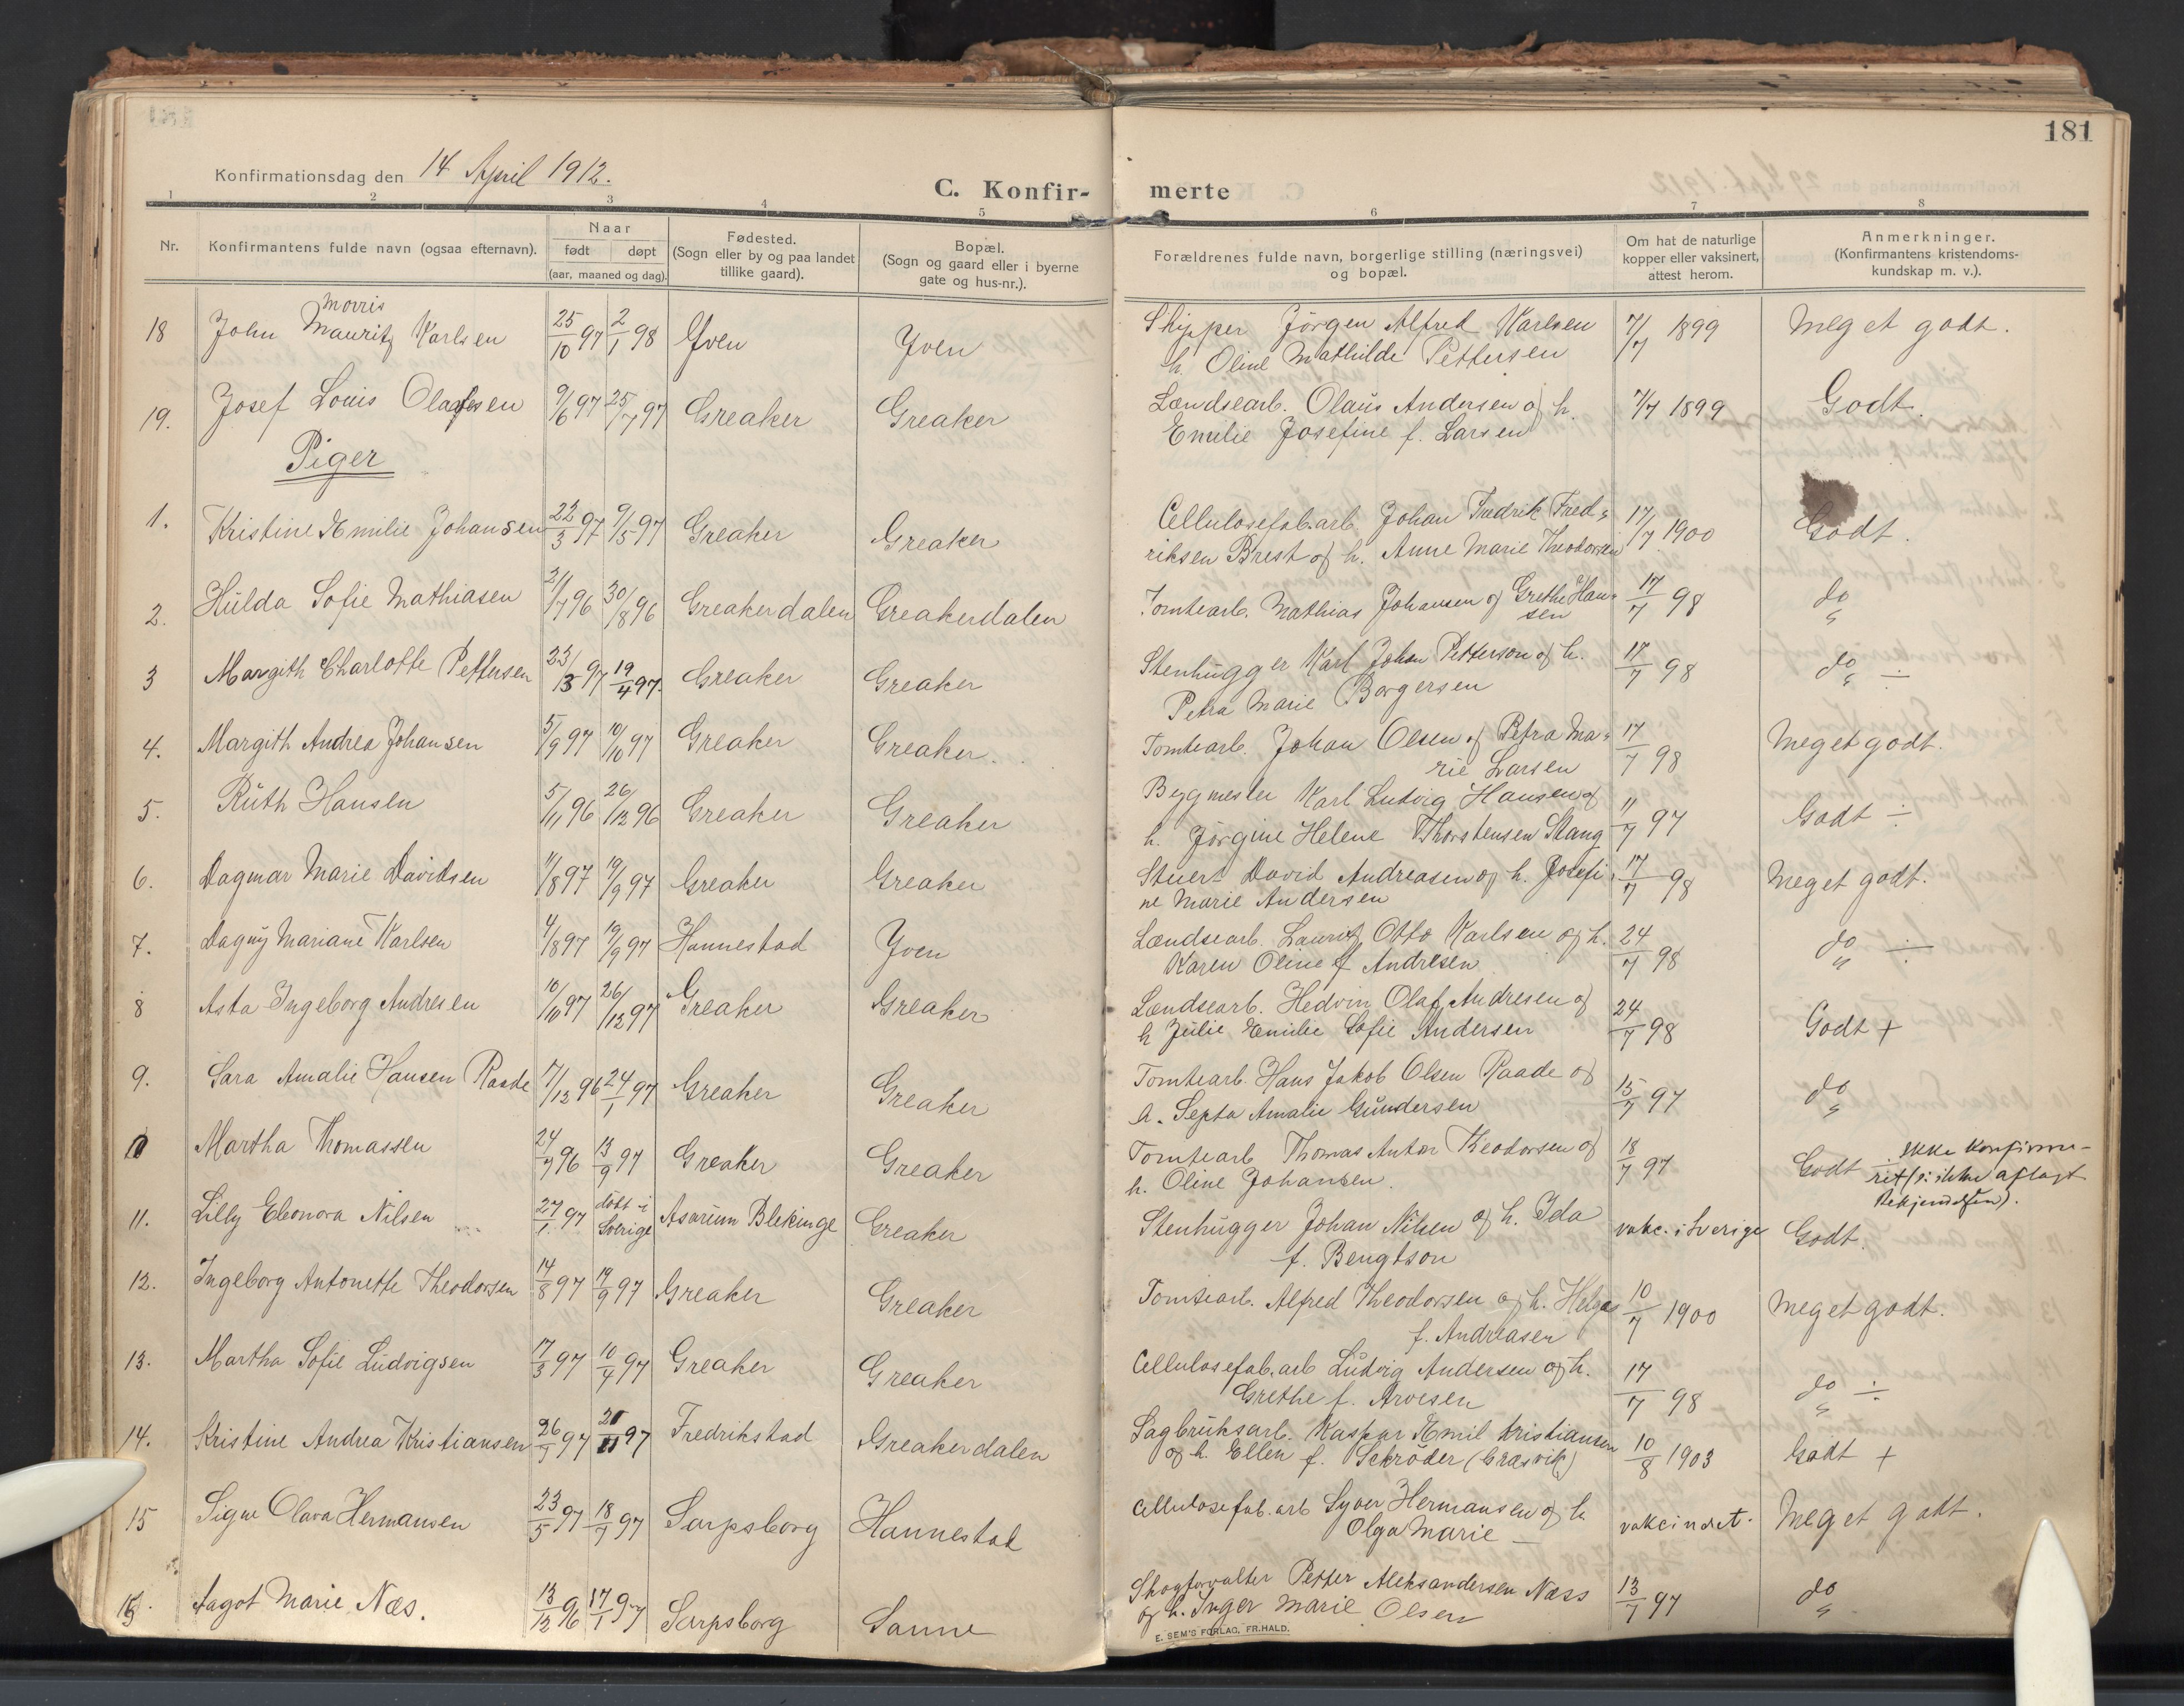 181
Konfirmationsdag den 14 April 1912.
C. Konfir-
merte
1 2 3 4 5 6 7 8
Nr. Konfirmantens fulde navn (ogsaa efternavn). Naar født døpt (aar, maaned og dag). Fødested. (Sogn eller by og paa landet tillike gaard). Bopæl. (Sogn og gaard eller i byerne gate og hus-nr.). Forældrenes fulde navn, borgerlige stilling (næringsvei) og bopæl. Om hat de naturlige kopper eller vaksinert, attest herom. Anmerkninger. (Konfirmantens kristendoms-kundskap m. v.).
Morris
18 John Mauritz Karlsen 25/10 97 2/1 98 Yven Yven Skipper Jörgen Alfred Karlsen 7/7 1899 Meget godt.
h. Oline Mathilde Pettersen
19. Josef Louis Olausen 9/6 97 25/7 97 Greaker Greaker Lændsearb. Olaus Andersen og h. 7/7 1899 Godt.
Emilie Josefine f. Larsen
Piger
1. Kristine Emilie Johansen 22/3 97 9/5 97 Greaker Greaker Cellulosefab.arb. Johan Fredrik Fred- 17/7 1900 Godt.
riksen Brest og h. Anne Marie Theodorsen
2. Hulda Sofie Mathiasen 21/7 96 30/8 96 Greakerdalen Greakerdalen Tomtearb. Mathias Johansen og Grethe Han- 17/7 98 do
sen
3 Margith Charlotte Pettersen 23/3 97 19/4 97. Greaker Greaker Stenhugger Karl Johan Petterson og h. 17/7 98 do ÷
Petra Marie Borgersen
4. Margith Andrea Johansen 5/9 97 10/10 97 Greaker Greaker. Tomtearb. Johan Olsen og Petra Ma- 17/7 98 Meget godt.
rie Larsen
5. Ruth Hansen 5/11 96 26/12 96 Greaker Greaker Bygmester Karl Ludvig Hansen og 11/7 97 Godt ÷
h. Jörgine Helene Thorstensen Stang
6. Dagmar Marie Davidsen 11/8 97 19/9 97 Greaker Greaker Stuert David Andreasen og h. Josefi- 17/7 98 Meget godt.
ne Marie Andersen
7. Dagny Mariane Karlsen 4/8 97 19/9 97 Hannestad Yven Lændsearb. Laurits Otto Karlsen og h. 24/7 98 do ÷
Karen Oline f Andresen
8 Asta Ingeborg Andresen 10/10 97 26/12 97 Greaker Greaker Lændsearb. Hedvin Olaf Andresen og 24/7 98 Godt +
h Julie Emilie Sofie Andersen
9. Sara Amalie Hansen Raade 7/12 96 24/1 97 Greaker Greaker Tomtearb. Hans Jakob Olsen Raade og 15/7 97 do
h. Septa Amalie Gundersen
10 Martha Thomassen 24/7 96 13/9 97 Greaker Greaker Tomtearb Thomas Anton Theodorsen og 18/7 97 Godt ikke konfirme-
h. Oline Johansen. ret (ɔ: ikke aflagt
Bekjendelsen).
11. Lilly Eleonora Nilsen 27/1. 97 döbt i Sverige Asarum Blekinge Greaker Stenhugger Johan Nilsen og h. Ida vakc. i Sverige Godt.
f. Bengtson
12. Ingeborg Antonette Theodorsen 14/8 97 19/9 97 Greaker Greaker Tomtearb. Alfred Theodorsen og h. Helga 10/7 1900 Meget godt.
f. Andreasen
13. Martha Sofie Ludvigsen 17/3 97 10/4 97 Greaker Greaker Cellulosefab.arb Ludvig Andersen og h. 17/7 98 do ÷
Grethe f. Arvesen
14. Kristine Andrea Kristiansen 26/9 97 21/11 97 Fredrikstad Greakerdalen Sagbruksarb. Kaspar Emil Kristiansen 10/8 1903 Godt +
og h. Ellen f. Schröder (Græsvik)
15 Signe Olava Hermansen 23/5 97 18/7 97 Sarpsborg Hannestad Cellulosefab.arb Syver Hermansen og h vakcineret. Meget godt.
Olga Marie —
16. Aagot Marie Næs. 13/12 96 17/1 97 Sarpsborg Sanne Skogforvalter Petter Aleksandersen Næss 13/7 97 do
og h. Inger Marie Olsen
E. SEM'S FORLAG, FR.HALD.